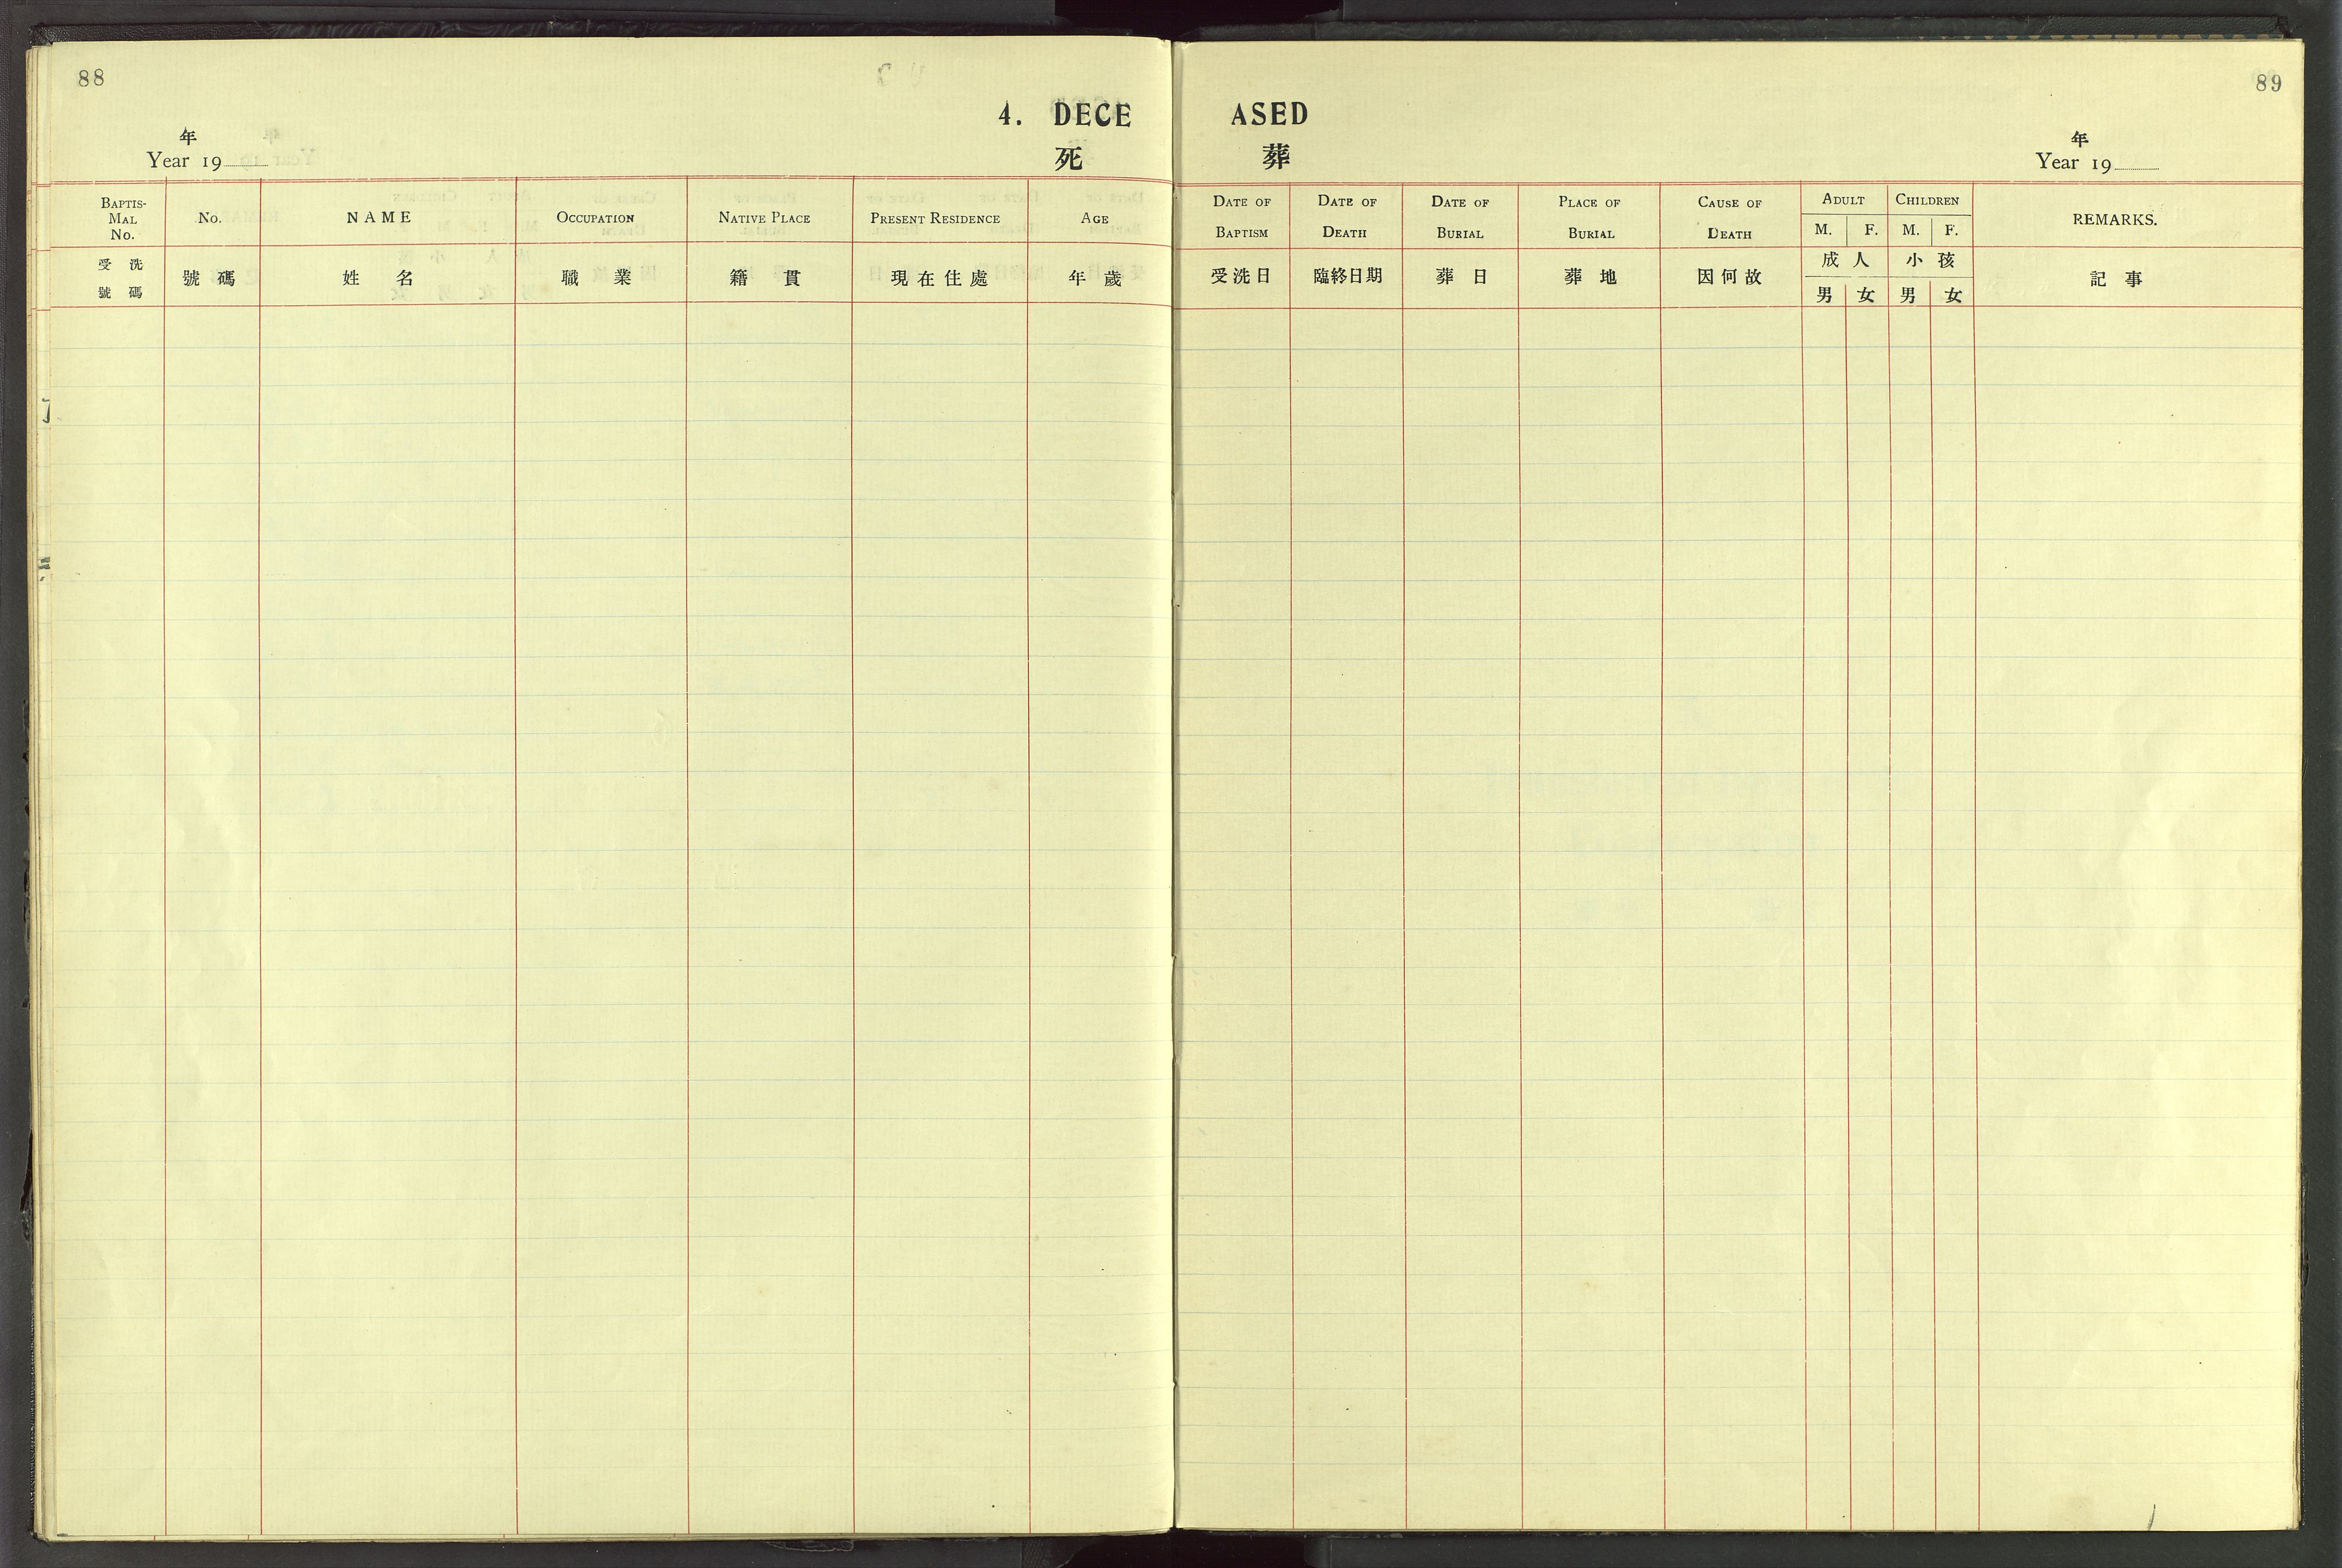 88
4. DECE
年
Year 19
死
BAPTIS-
MAL
No.
No.
NAME
OCCUPATION
NATIVE PLACE
PRESENT RESIDENCE
AGE
受洗
號碼
號碼
姓名
職業
籍貫
現在住處
年歲
89
ASED
年
Year 19
葬
DATE OF
BAPTISM
DATE OF
DEATH
DATE OF
BURIAL
PLACE OF
BURIAL
CAUSE OF
DEATH
ADULT
M. F.
CHILDREN
M. F.
REMARKS.
受洗日
臨終日期
葬日
葬地
因何故
成人
男 女
小孩
男 女
記事